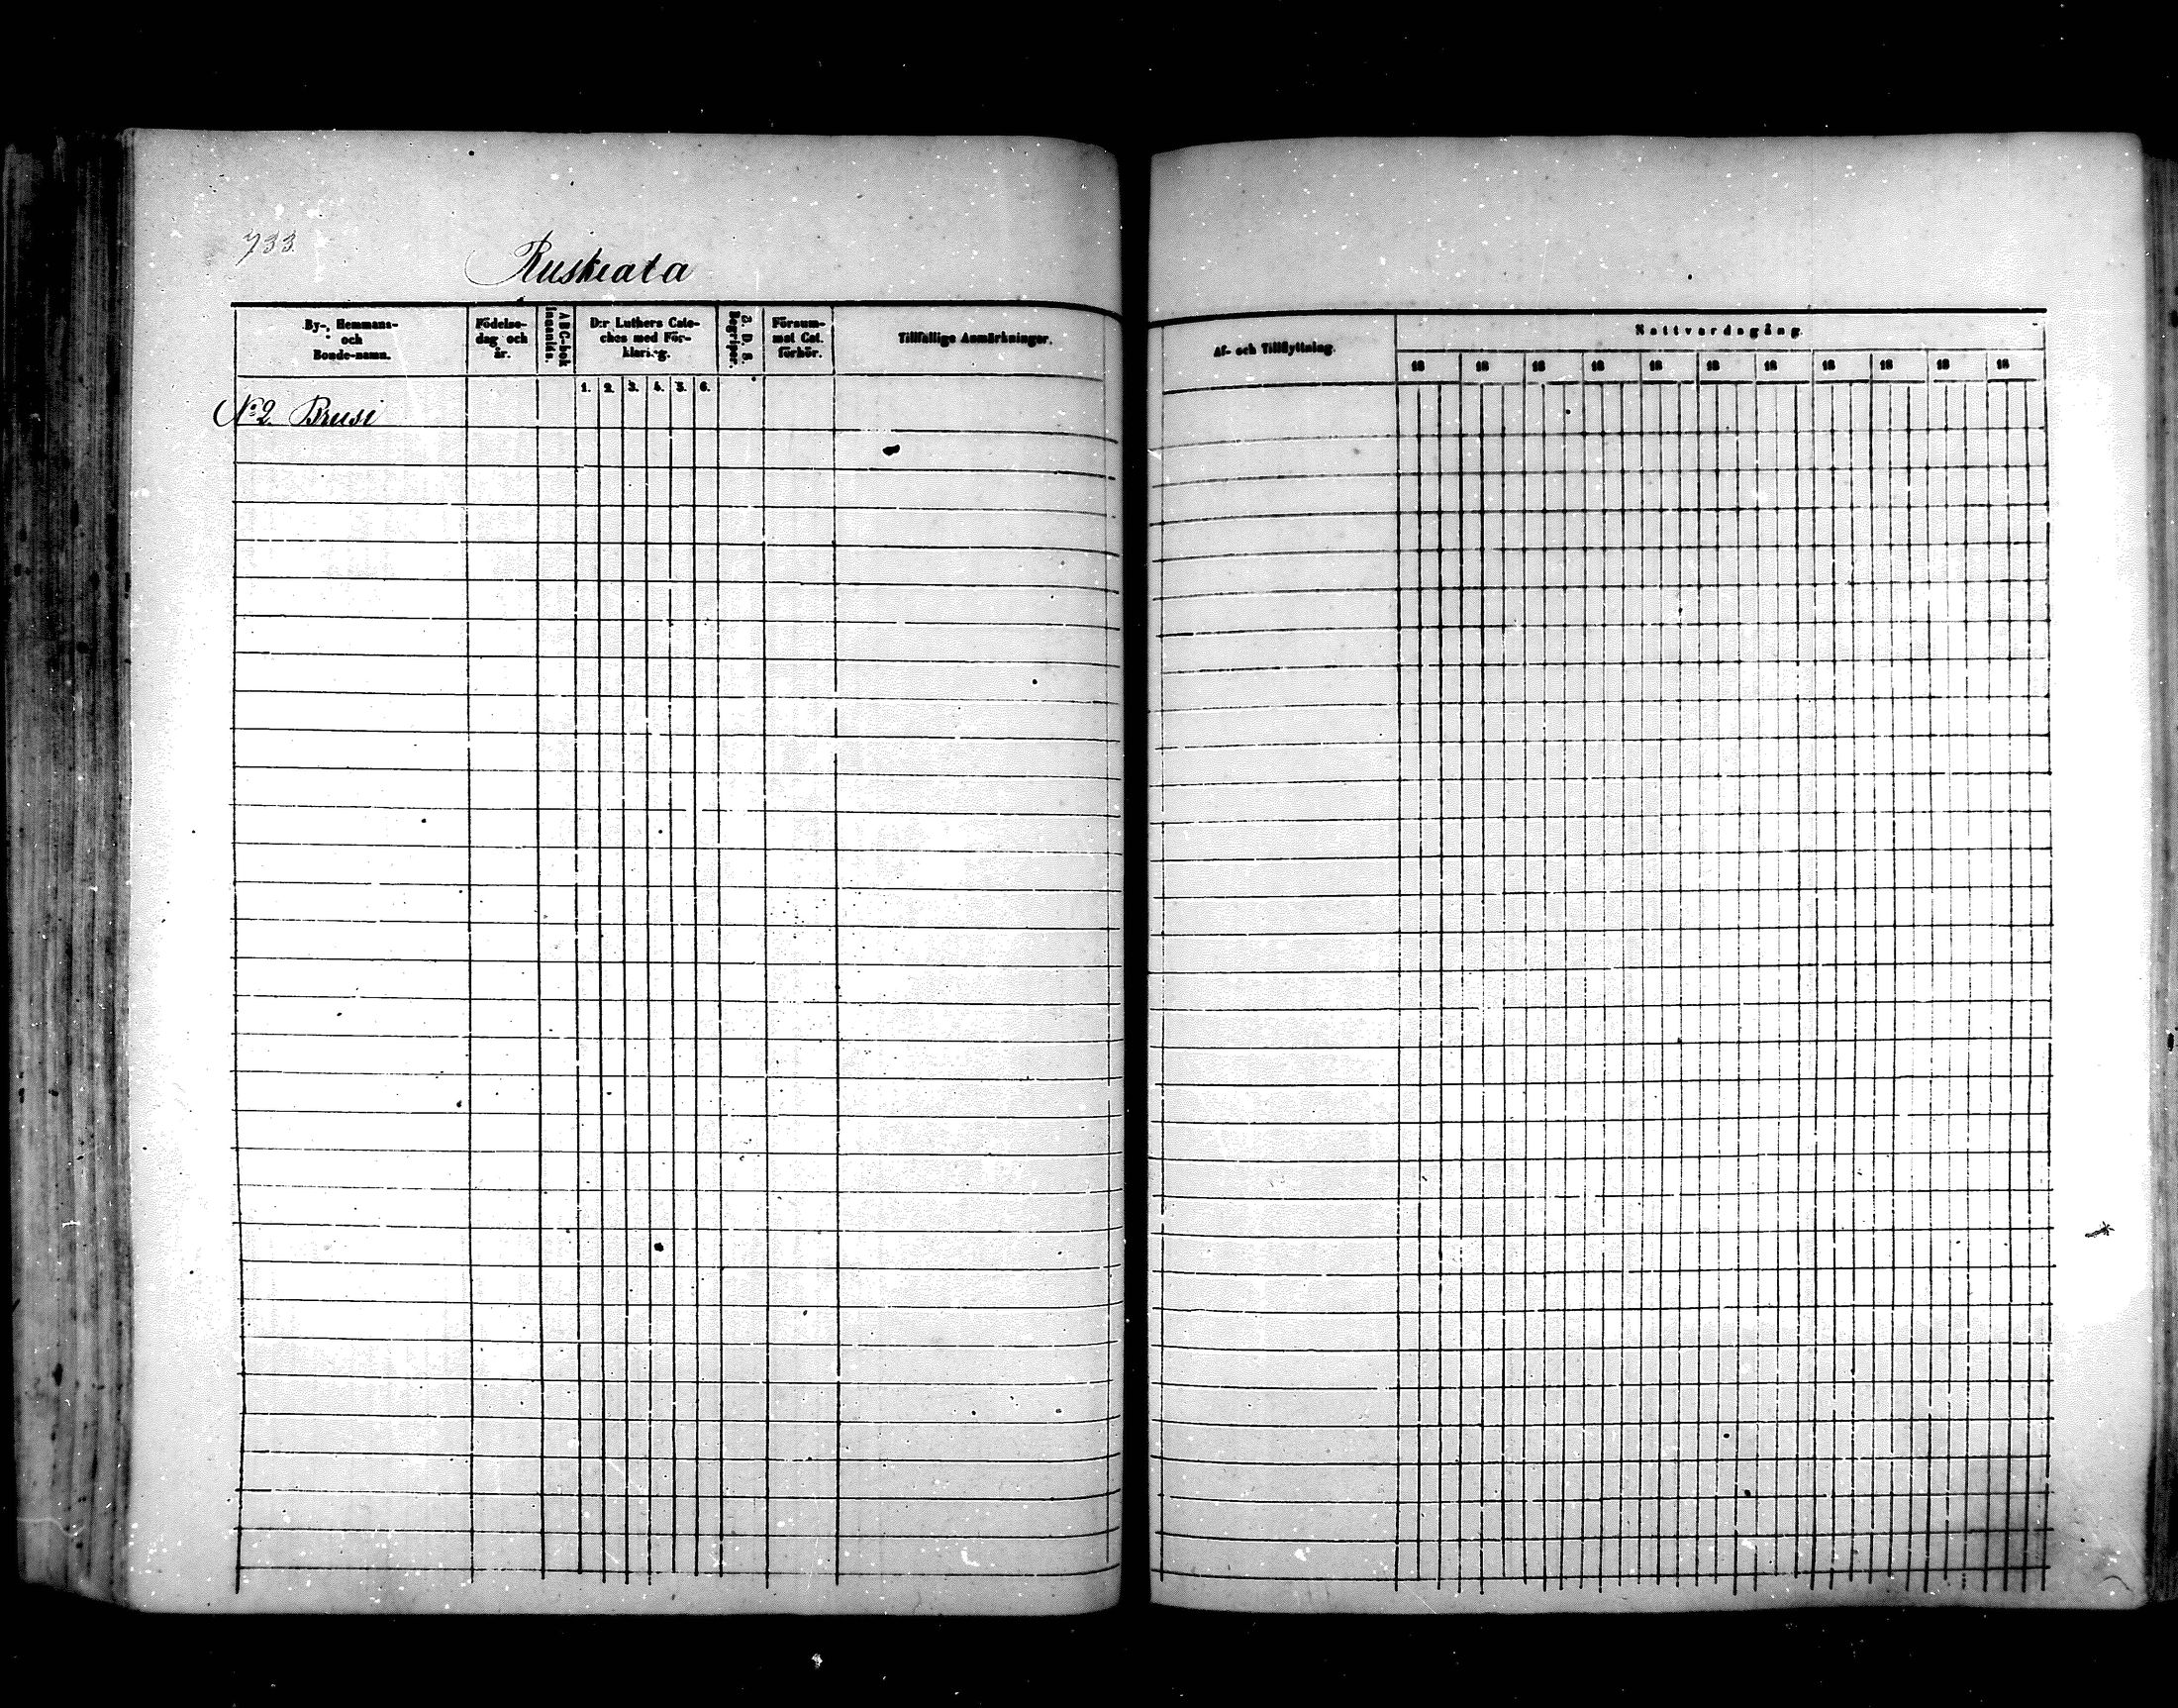 733.
Ruskiala
By-, Hemmans-
och
Bonde-namn.
Födelse-
dag och
år.
ABC-bok
Innanläs.
D:r Luthers Cate-
ches med För-
klaring.
1. 2. 3. 4. 5. 6.
S. D. S.
Begriper.
Försum-
mat Cat.
förhör.
Tillfällige Anmärkningar.
Af- och Tillflyttning.
Nattvardsgång.
18 18 18 18 18 18 18 18 18 18 18
No 2. Brusi